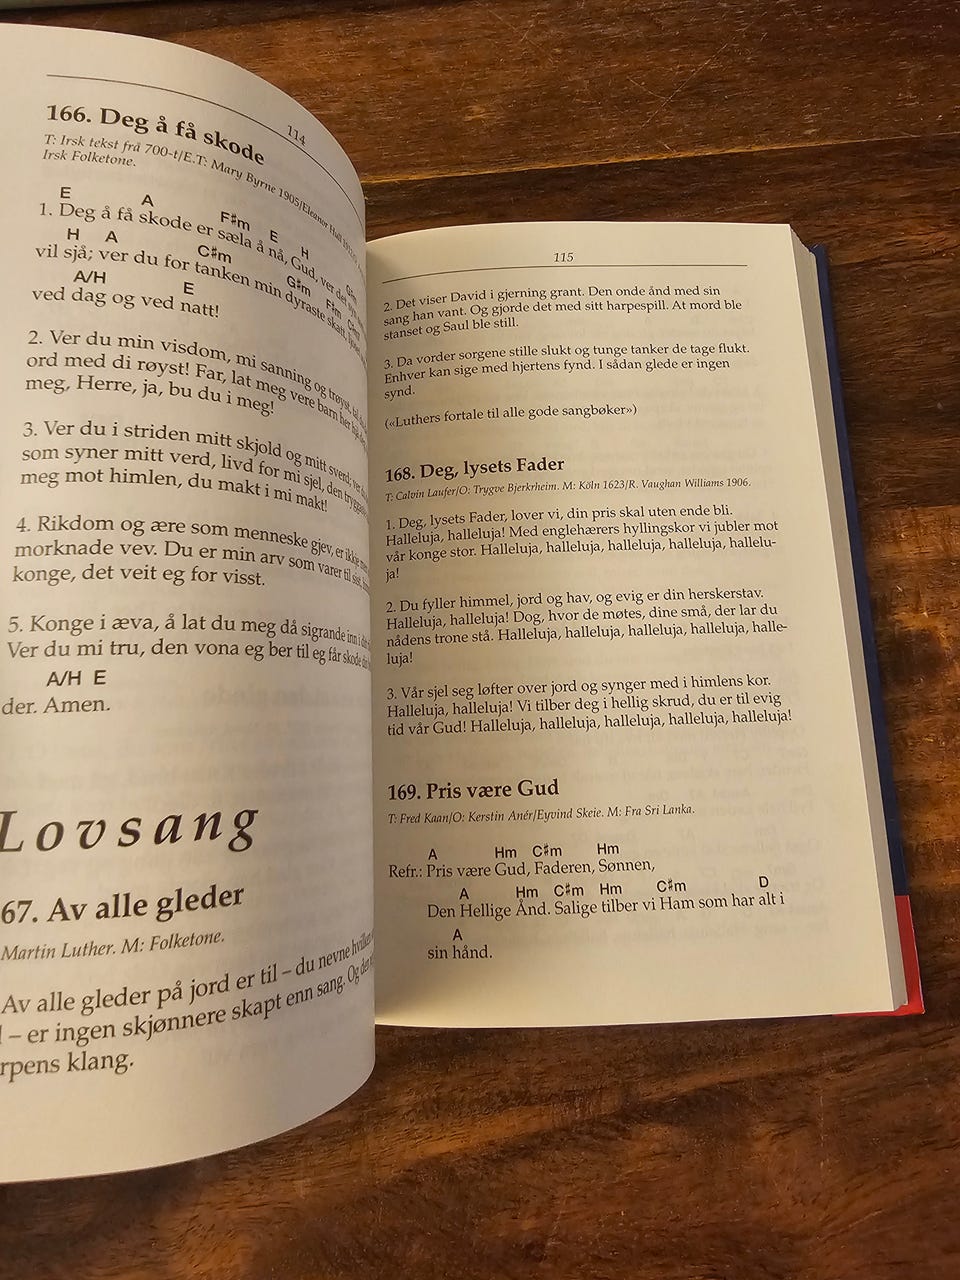 114
166. Deg å få skode
T: Irsk tekst frå 700-t/E.T: Mary Byrne 1905/Eleanor Hull
Irsk Folketone.
E A F#m E H
1. Deg å få skode er sæla å nå, Gud, ver det
H A C#m G#m F#m
vil sjå; ver du for tanken min dyraste skatt,
A/H E
ved dag og ved natt!
2. Ver du min visdom, mi sanning og trøyst,
ord med di røyst! Far, lat meg vere barn
meg, Herre, ja, bu du i meg!
3. Ver du i striden mitt skjold og mitt sverd,
som syner mitt verd, livd for mi sjel, den
meg mot himlen, du makt i mi makt!
4. Rikdom og ære som menneske gjev, er
morknade vev. Du er min arv som varer til
konge, det veit eg for visst.
5. Konge i æva, å lat du meg då sigrande inn i
Ver du mi tru, den vona eg ber til eg får skode
A/H E
der. Amen.
Lovsang
67. Av alle gleder
Martin Luther. M: Folketone.
Av alle gleder på jord er til – du nevne
– er ingen skjønnere skapt enn sang. Og
rpens klang.
115
2. Det viser David i gjerning grant. Den onde ånd med sin
sang han vant. Og gjorde det med sitt harpespill. At mord ble
stanset og Saul ble still.
3. Da vorder sorgene stille slukt og tunge tanker de tage flukt.
Enhver kan sige med hjertens fynd. I sådan glede er ingen
synd.
(«Luthers fortale til alle gode sangbøker»)
168. Deg, lysets Fader
T: Calvin Laufer/O: Trygve Bjerkrheim. M: Köln 1623/R. Vaughan Williams 1906.
1. Deg, lysets Fader, lover vi, din pris skal uten ende bli.
Halleluja, halleluja! Med englehærers hyllingskor vi jubler mot
vår konge stor. Halleluja, halleluja, halleluja, halleluja, hallelu-
ja!
2. Du fyller himmel, jord og hav, og evig er din herskerstav.
Halleluja, halleluja! Dog, hvor de møtes, dine små, der lar du
nådens trone stå. Halleluja, halleluja, halleluja, halleluja, halle-
luja!
3. Vår sjel seg løfter over jord og synger med i himlens kor.
Halleluja, halleluja! Vi tilber deg i hellig skrud, du er til evig
tid vår Gud! Halleluja, halleluja, halleluja, halleluja, halleluja!
169. Pris være Gud
T: Fred Kaan/O: Kerstin Anér/Eyvind Skeie. M: Fra Sri Lanka.
A Hm C#m Hm
Refr.: Pris være Gud, Faderen, Sønnen,
A Hm C#m Hm C#m D
Den Hellige Ånd. Salige tilber vi Ham som har alt i
A
sin hånd.